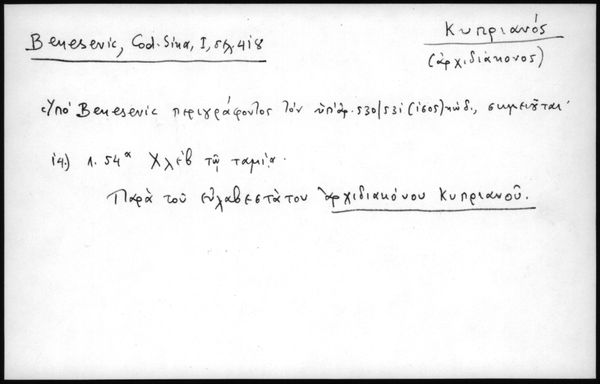 Κυπριανός
Benesevic, Cod. Sina, I, σελ. 418
(ἀρχιδιάκονος)
Ὑπὸ Benesevic περιγράφοντος τὸν ὑπ' ἀρ. 530/531 (ἰσος) κώδ., σημειοῦται·
14.) λ. 54α Χλὲβ τῷ ταμίᾳ.
Παρὰ τοῦ εὐλαβεστάτου ἀρχιδιακόνου Κυπριανοῦ.